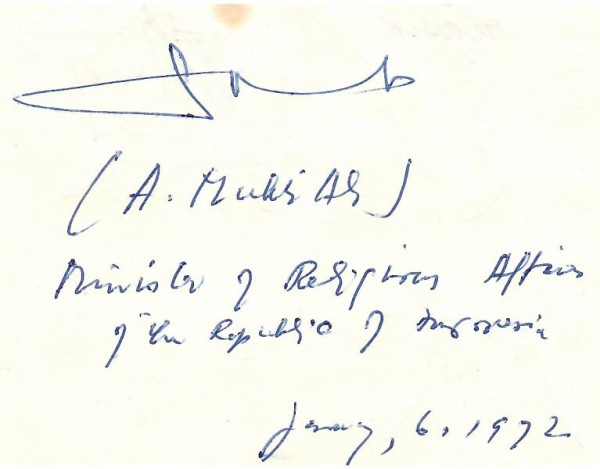 (A. Mukti Ali)
Minister of Religious Affairs
of the Republic of Indonesia
January, 6, 1972